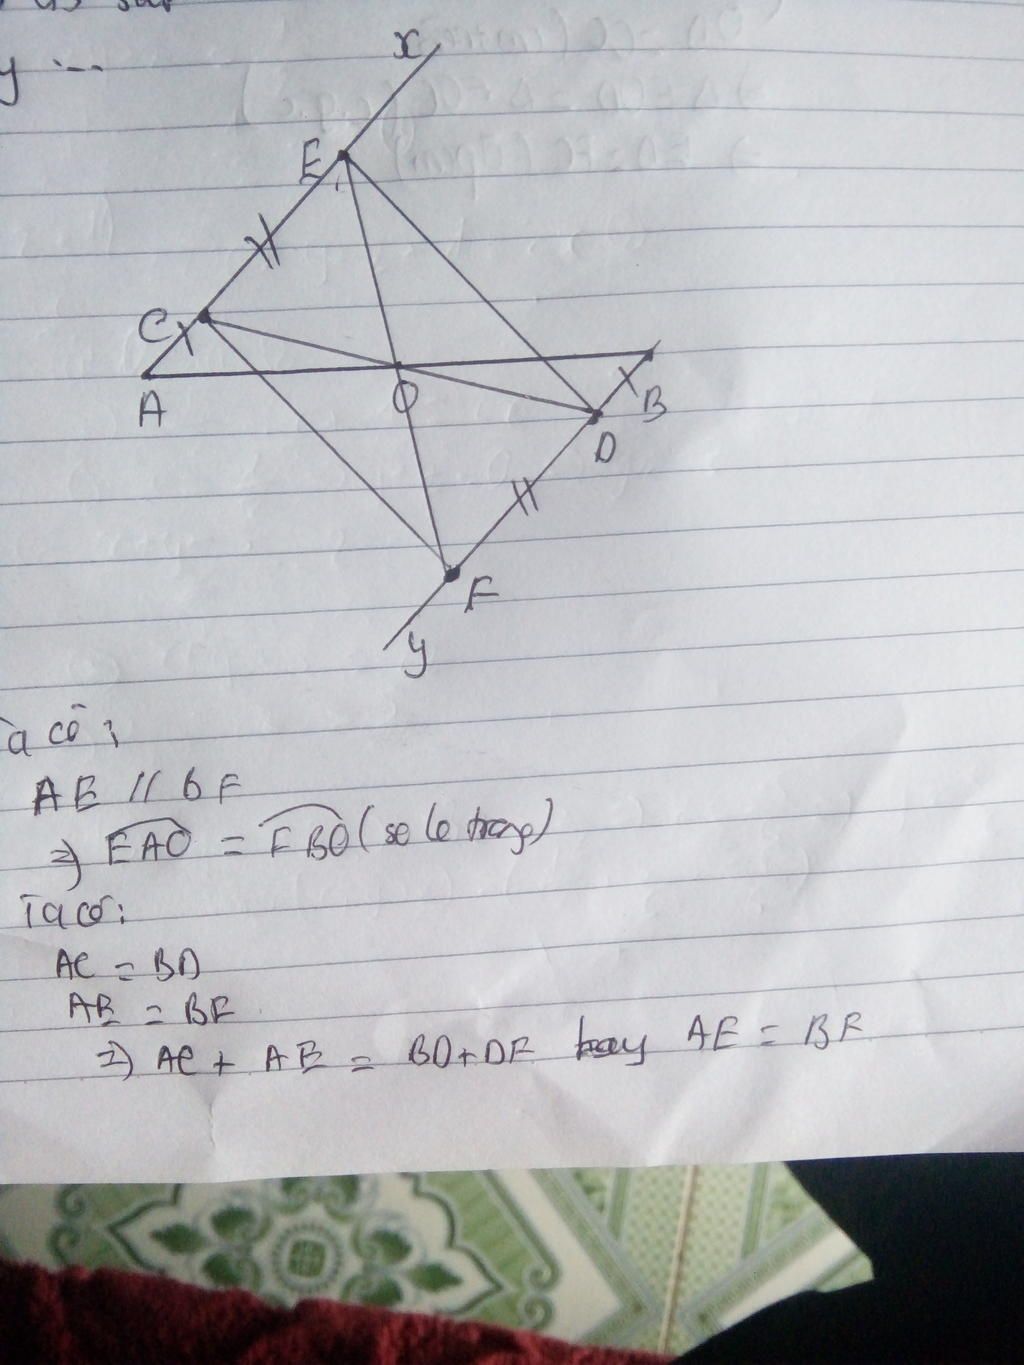 y ...
x
E
C
A
O
B
D
F
y
a có:
AE // BF
=> EAO = FBO (so le trong)
Ta có:
AC = BD
AE = BF
=> AC + AE = BD + DF hay AE = BF